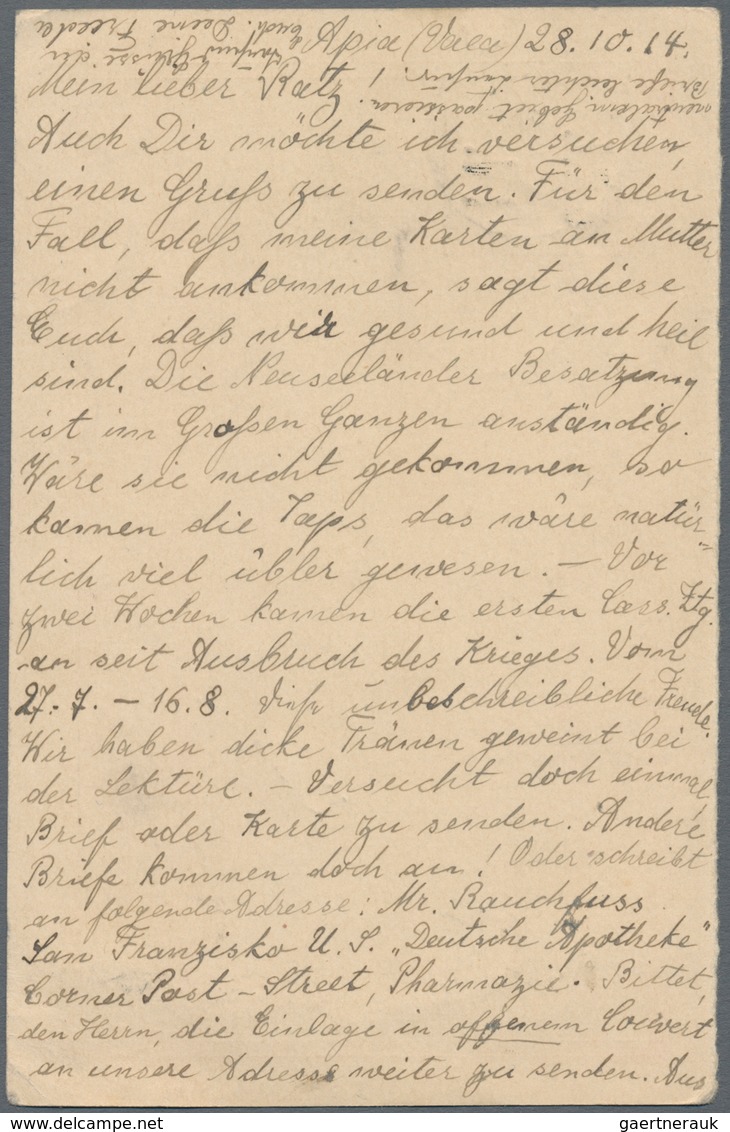 Apia (Vaea) 28.10.14.
Mein lieber Ratz!
Auch Dir möchte ich versuchen,
einen Gruß zu senden. Für den
Fall, daß meine Karten an Mutter
nicht ankommen, sagt diese
Euch, daß wir gesund und heil
sind. Die Neuseeländer Besatzung
ist im Großen Ganzen anständig.
Wäre sie nicht gekommen, so
kamen die Japs, das wäre natür-
lich viel übler gewesen. – Vor
zwei Wochen kamen die ersten Cass. Ztg.
an seit Ausbruch des Krieges. Vom
27.7. – 16.8. Diese unbeschreibliche Freude.
Wir haben dicke Tränen geweint bei
der Lektüre. – Versucht doch einmal,
Brief oder Karte zu senden. Andere
Briefe kommen doch an! Oder schreibt
an folgende Adresse: Mr. Rauchfuss
San Franzisko U. S. „Deutsche Apotheke"
Corner Post – Street, Pharmazie. Bittet,
den Herrn, die Einlage in offenem Couvert
an unsere Adresse weiter zu senden. Aus
neutralem Gebiet passieren
Briefe leichter
tausend Grüsse Dir
u. Euch. Deine Freede
gaertnerauk